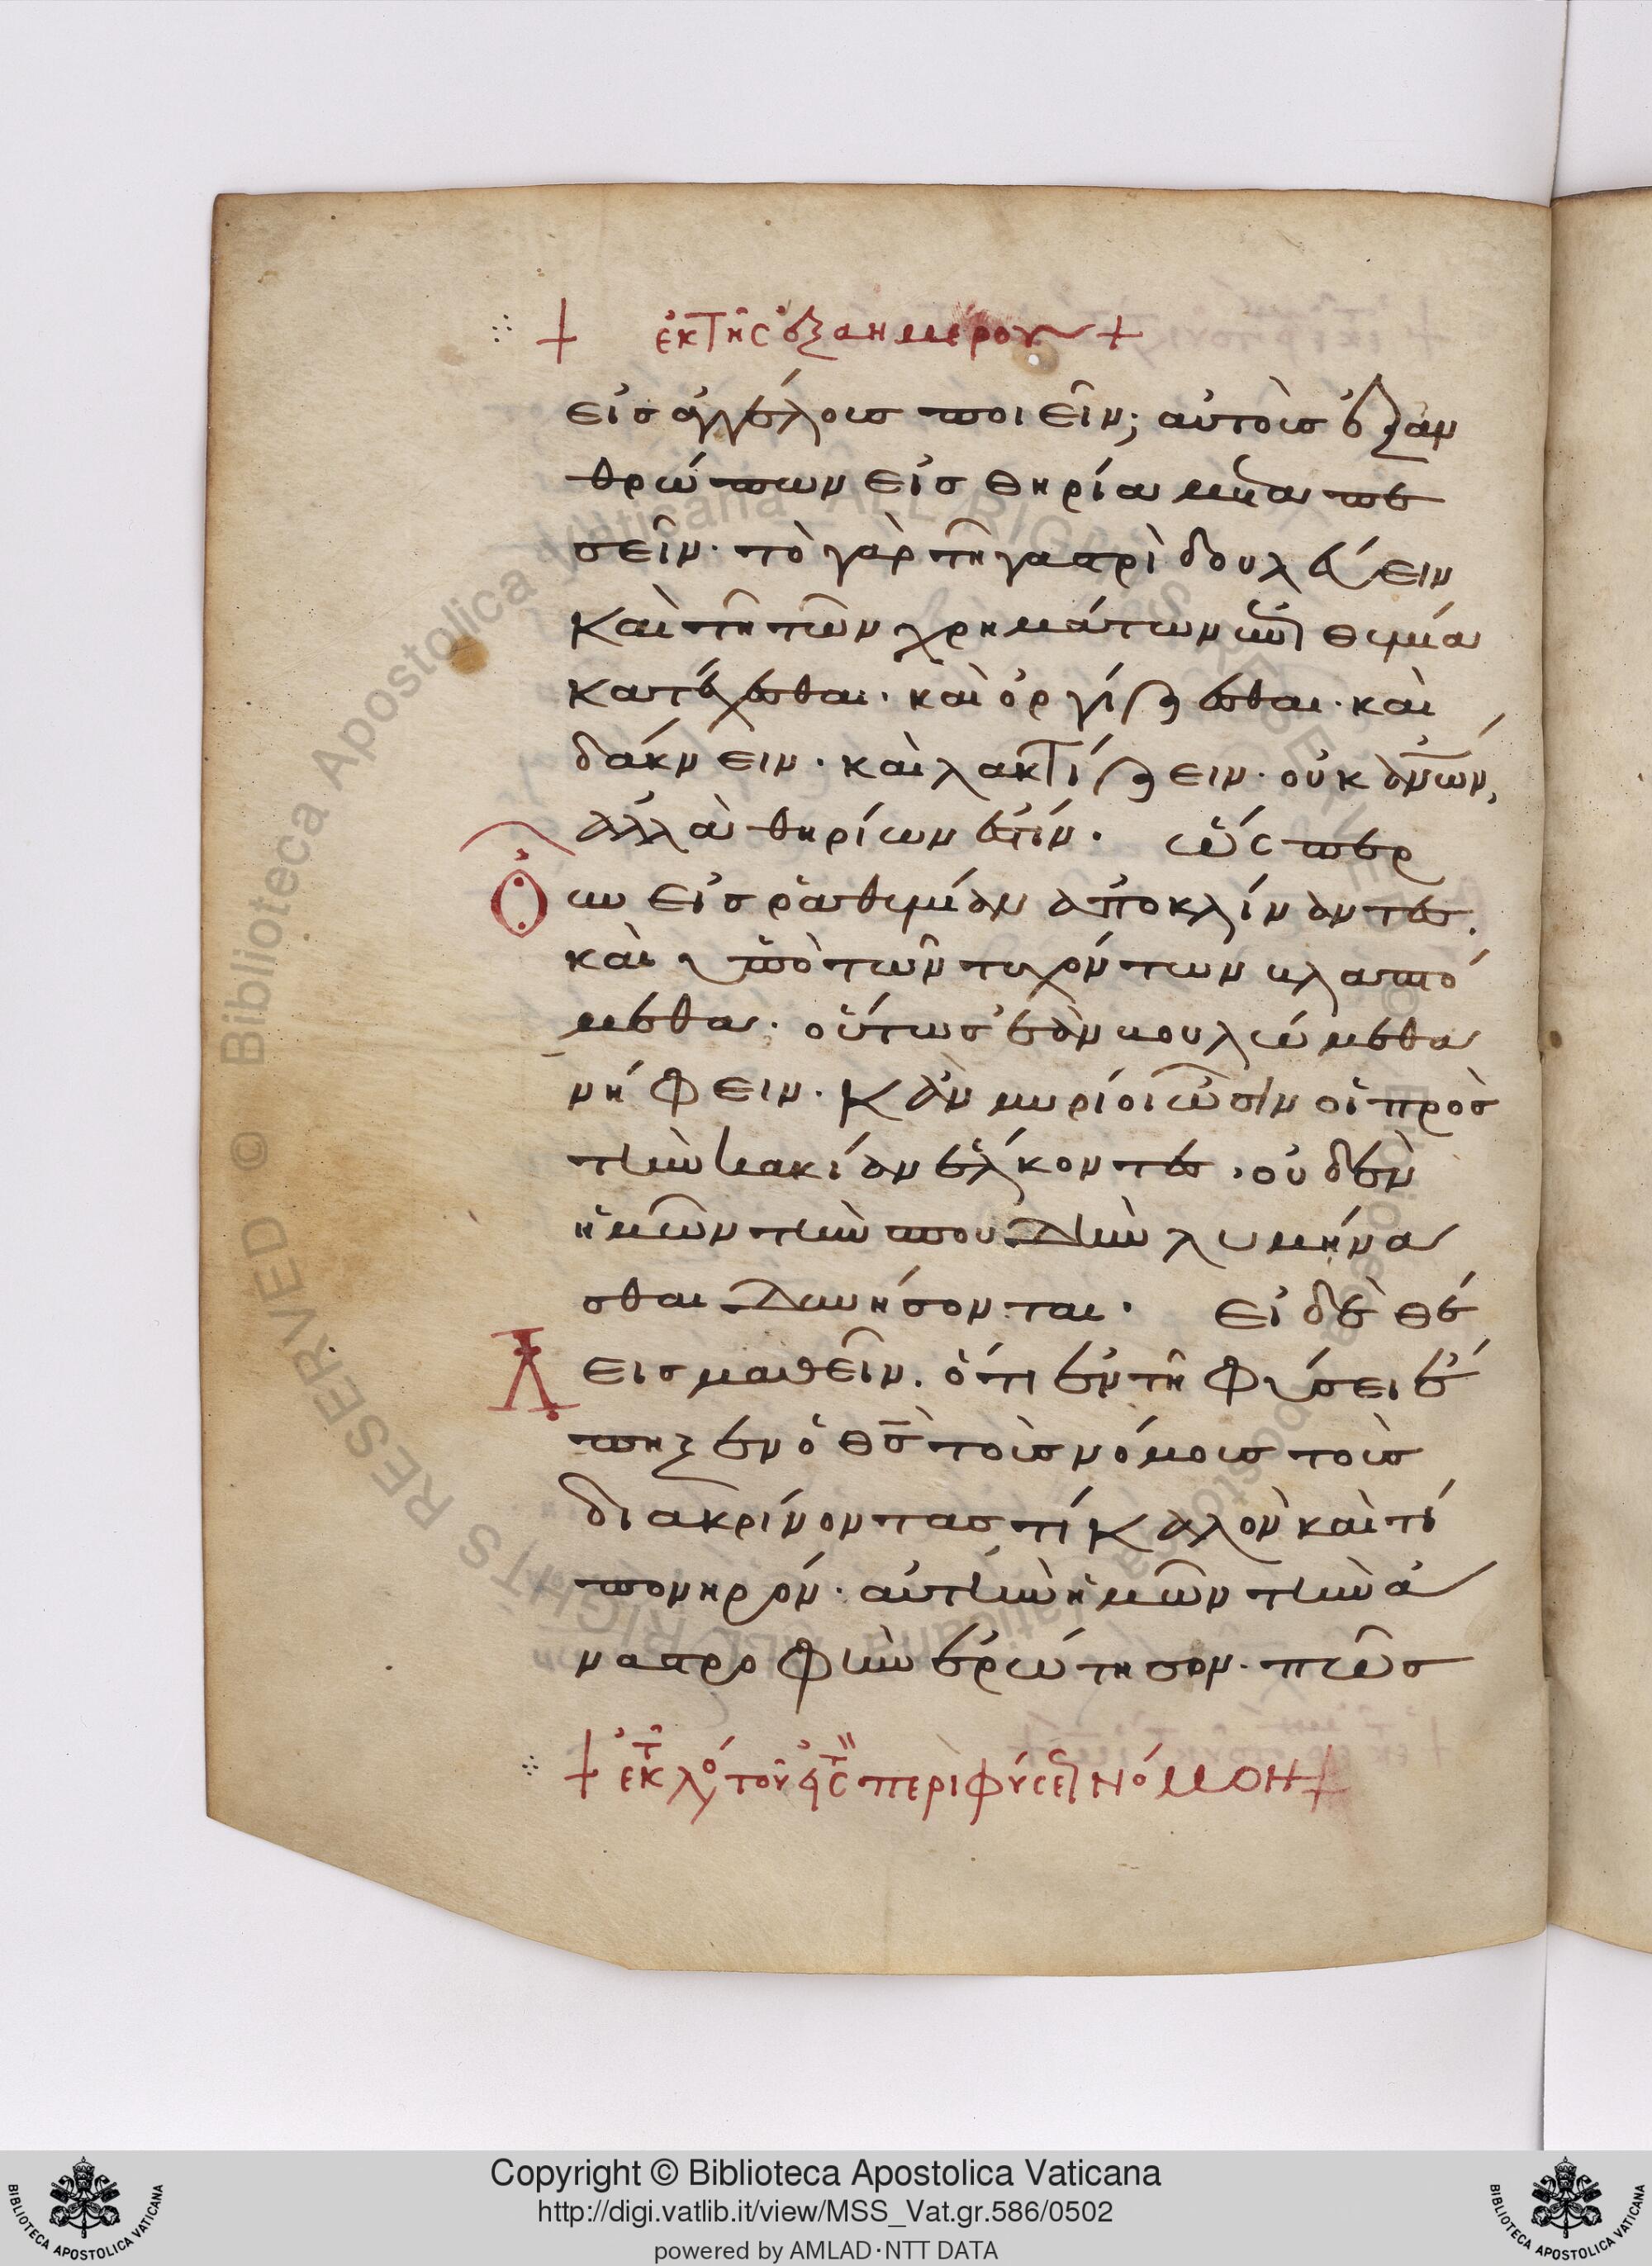 + ἐκ τῆς ἑξαημέρου +
εἰς ἀγγέλους ποιεῖν; αὐτοὺς ἐξ ἀν
θρώπων εἰς θηρία μεταπε
σεῖν· τὸ γὰρ τῆ γαστρὶ δουλεύειν
καὶ τῆ τῶν χρημάτων ἐπιθυμία
κατέχεσθαι· καὶ ὀργίζεσθαι· καὶ
δάκνειν· καὶ λακτίζειν· οὐκ ἀν̅ων̅,
ἀλλὰ θηρίων ἐστίν· ὥσπερ
οὖν εἰς ῥαθυμίαν ἀποκλίναντες.
καὶ ὑπὸ τῶν τυχόντων βλαπτό
μεθα· οὕτως ἐὰν βουλώμεθα
νήφειν· κἂν μυρίοι ὦσιν οἱ πρὸς
τὴν κακίαν ἕλκοντες, οὐδὲν
ἡμῶν τὴν σπουδὴν λυμήνα
σθαι δυνήσονται· εἰ δὲ θέ
λεις μαθεῖν. ὅτι ἐν τῆ φύσει ἔ
πηξεν ὁ θ̅ς̅ τοὺς νόμους τοὺς
διακρίνοντας τί καλὸν καὶ τί
πονηρόν· αὐτὴν ἡμῶν τὴν ἀ
ναστροφὴν ἐρώτησον· πῶς
+ ἐκ τ λό τοῦ περὶ φύσε νόμον +
Copyright © Biblioteca Apostolica Vaticana
http://digi.vatlib.it/view/MSS_Vat.gr.586/0502
powered by AMLAD·NTT DATA